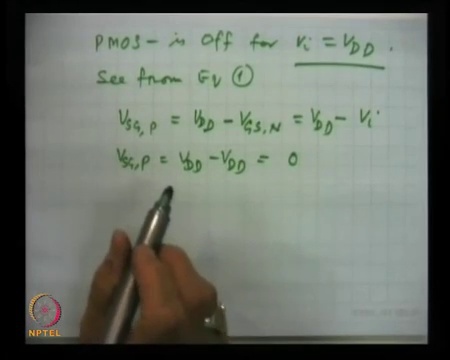 PMOS - is Off for Vi = VDD.
See from Eq ①
VSG,P = VDD - VGS,N = VDD - Vi
VSG,P = VDD - VDD = 0
NPTEL